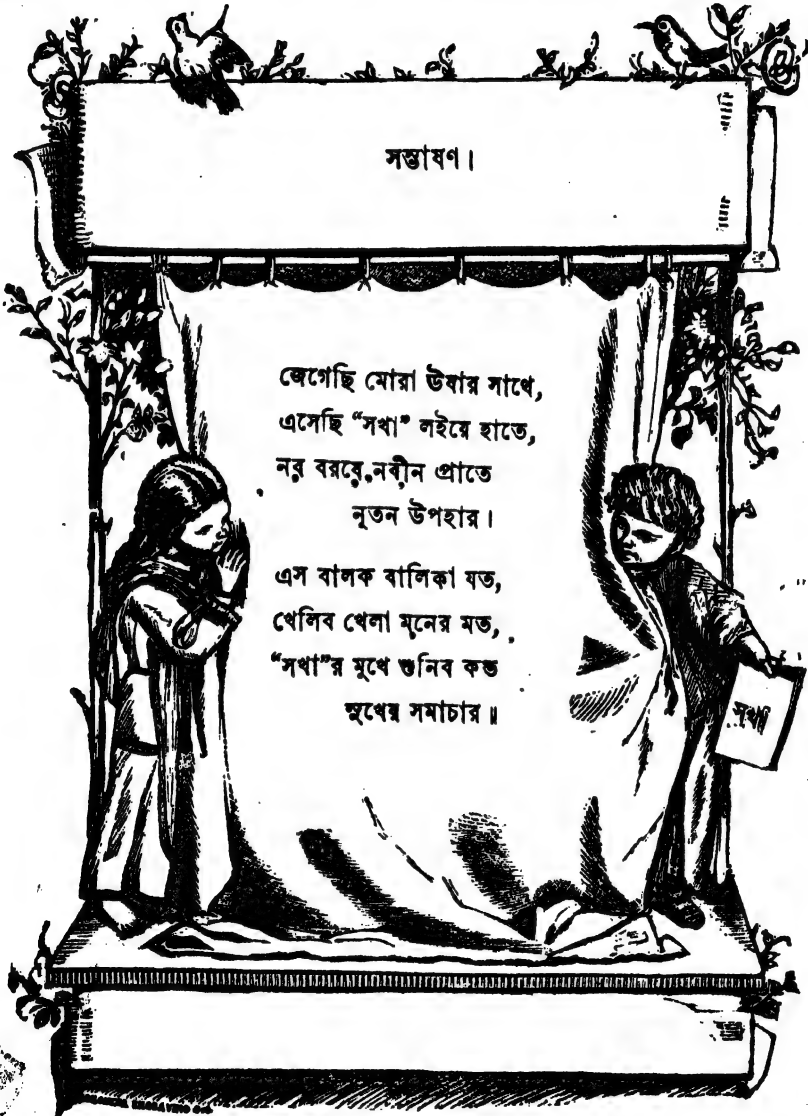 সম্ভাষণ।
জেগেছি মোরা ঊষার সাথে,
এসেছি “সখা” লইয়ে হাতে,
নব বরষে, নবীন প্রাতে
নূতন উপহার।
এস বালক বালিকা যত,
খেলিব খেলা মনের মত,
“সখা”র মুখে শুনিব কত
সুখের সমাচার॥
সখা